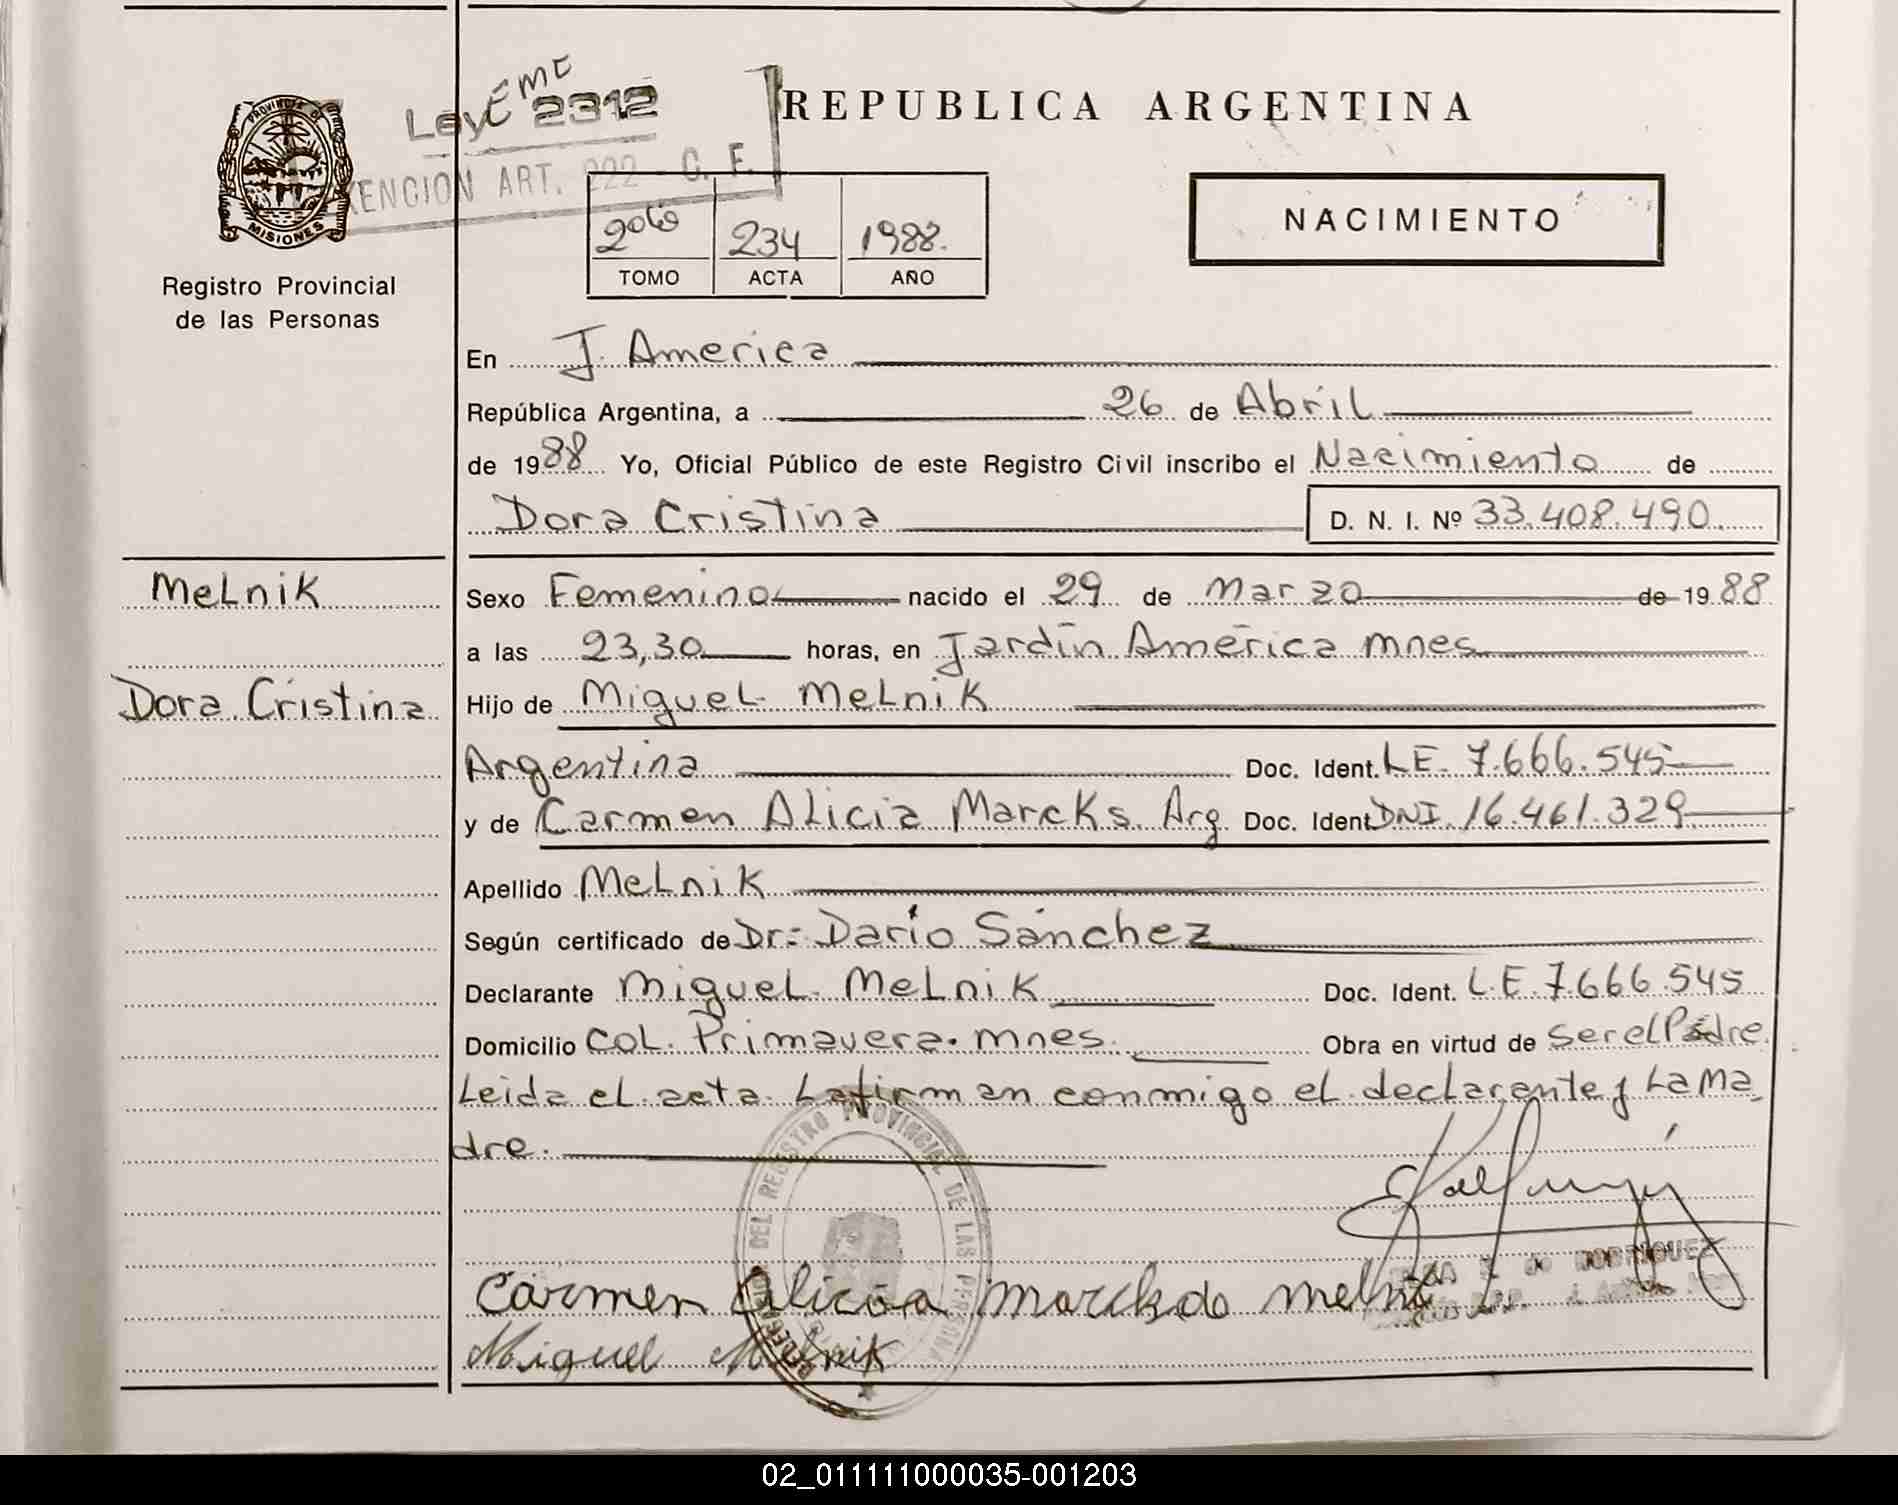 REPUBLICA ARGENTINA
Ley 2312
ART. 222 - C. F.
PROVINCIA DE
MISIONES
Registro Provincial
de las Personas
234 1988.
TOMO ACTA AÑO
NACIMIENTO
En J. America
República Argentina, a 26 de Abril
de 1988 Yo, Oficial Público de este Registro Civil inscribo el Nacimiento de
Dora Cristina D. N. I. Nº 33.408.490.
Melnik
Dora Cristina
Sexo Femenino nacido el 29 de Marzo de 1988
a las 23,30 horas, en Jardín América mnes
Hijo de Miguel Melnik
Argentina Doc. Ident. LE. 7.666.545
y de Carmen Alicia Marcks. Arg Doc. Ident DNI. 16.461.329
Apellido Melnik
Según certificado de Dr: Darío Sánchez
Declarante Miguel Melnik Doc. Ident. L.E. 7.666.545
Domicilio Col. Primavera. mnes. Obra en virtud de ser el Padre.
Leida el acta. La firman conmigo el declarante y La Ma
dre.
DEL REGISTRO PROVINCIAL DE LAS PERSONAS
DE RODRIGUEZ
Carmen Alicia Marcks de Melnik
Miguel Melnik
02_011111000035-001203